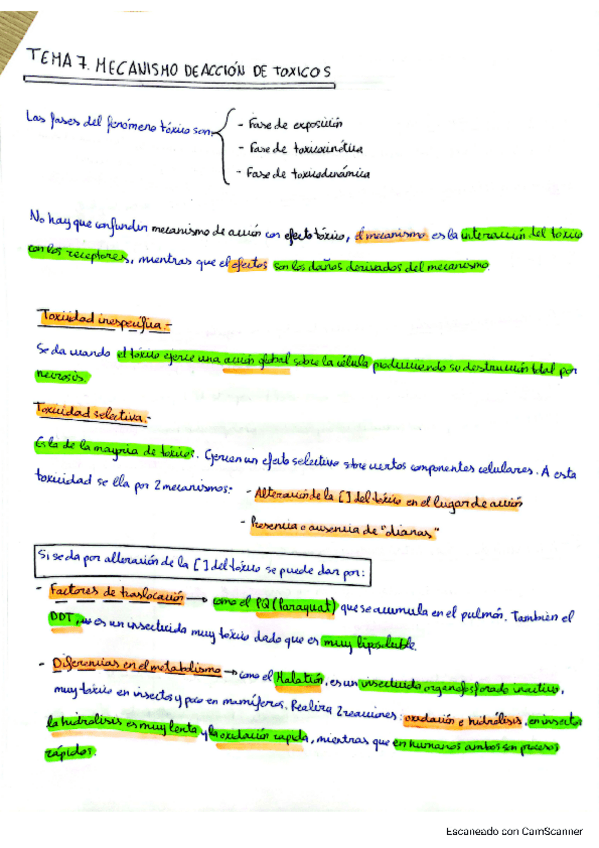 TEMA 7. MECANISMO DE ACCIÓN DE TOXICOS
Las fases del fenómeno tóxico son:
- Fase de exposición
- Fase de toxicocinética
- Fase de toxicodinámica
No hay que confundir mecanismo de acción con efecto tóxico, el mecanismo es la interacción del tóxico
con los receptores, mientras que el efectos son los daños derivados del mecanismo.
Toxicidad inespecífica.-
Se da cuando el tóxico ejerce una acción global sobre la célula produciendo su destrucción total por
necrosis.
Toxicidad selectiva.-
Es la de la mayoría de tóxicos. Ejercen un efecto selectivo sobre ciertos componentes celulares. A esta
toxicidad se lla por 2 mecanismos:
- Alteración de la [ ] del tóxico en el lugar de acción
- Presencia o ausencia de "dianas"
Si se da por alteración de la [ ] del tóxico se puede dar por:
- Factores de traslocación → como el PQ (Paraquat) que se acumula en el pulmón. También el
DDT, es un insecticida muy tóxico dado que es muy liposoluble.
- Diferencias en el metabolismo → como el Malatión, es un insecticida organofosforado inactivo,
muy tóxico en insectos y poco en mamíferos. Realiza 2 reacciones: oxidación e hidrólisis, en insectos
la hidrólisis es muy lenta y la oxidación rápida, mientras que en humanos ambos son procesos
rápidos.
Escaneado con CamScanner